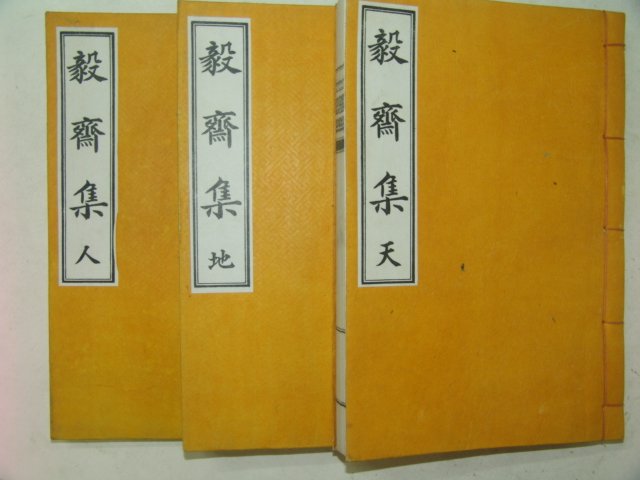 毅齋集天
毅齋集地
毅齋集人